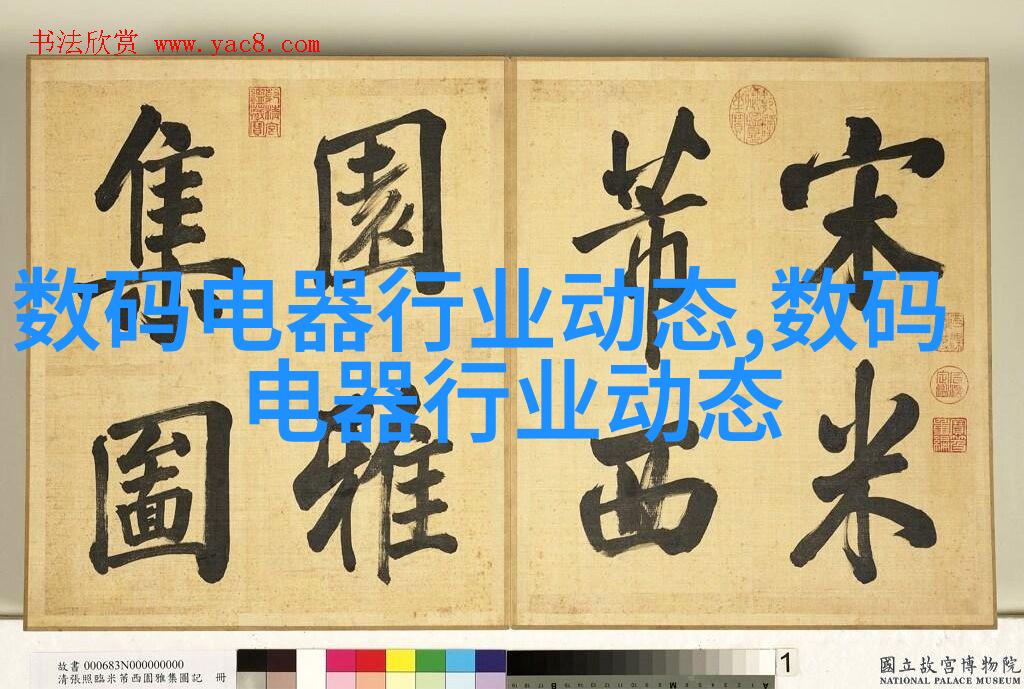 书法欣赏 www.yac8.com
宋米
芾西
園雅
集圖
数码电器行业动态,数码
电器行业动态
故書 000683N000000000
清張照臨米芾西園雅集圖記 冊
1
國立故宮博物院
NATIONAL PALACE MUSEUM